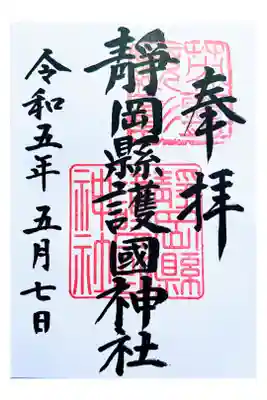 奉拝
靜岡縣護國神社
令和五年 五月七日
靜岡縣
神社